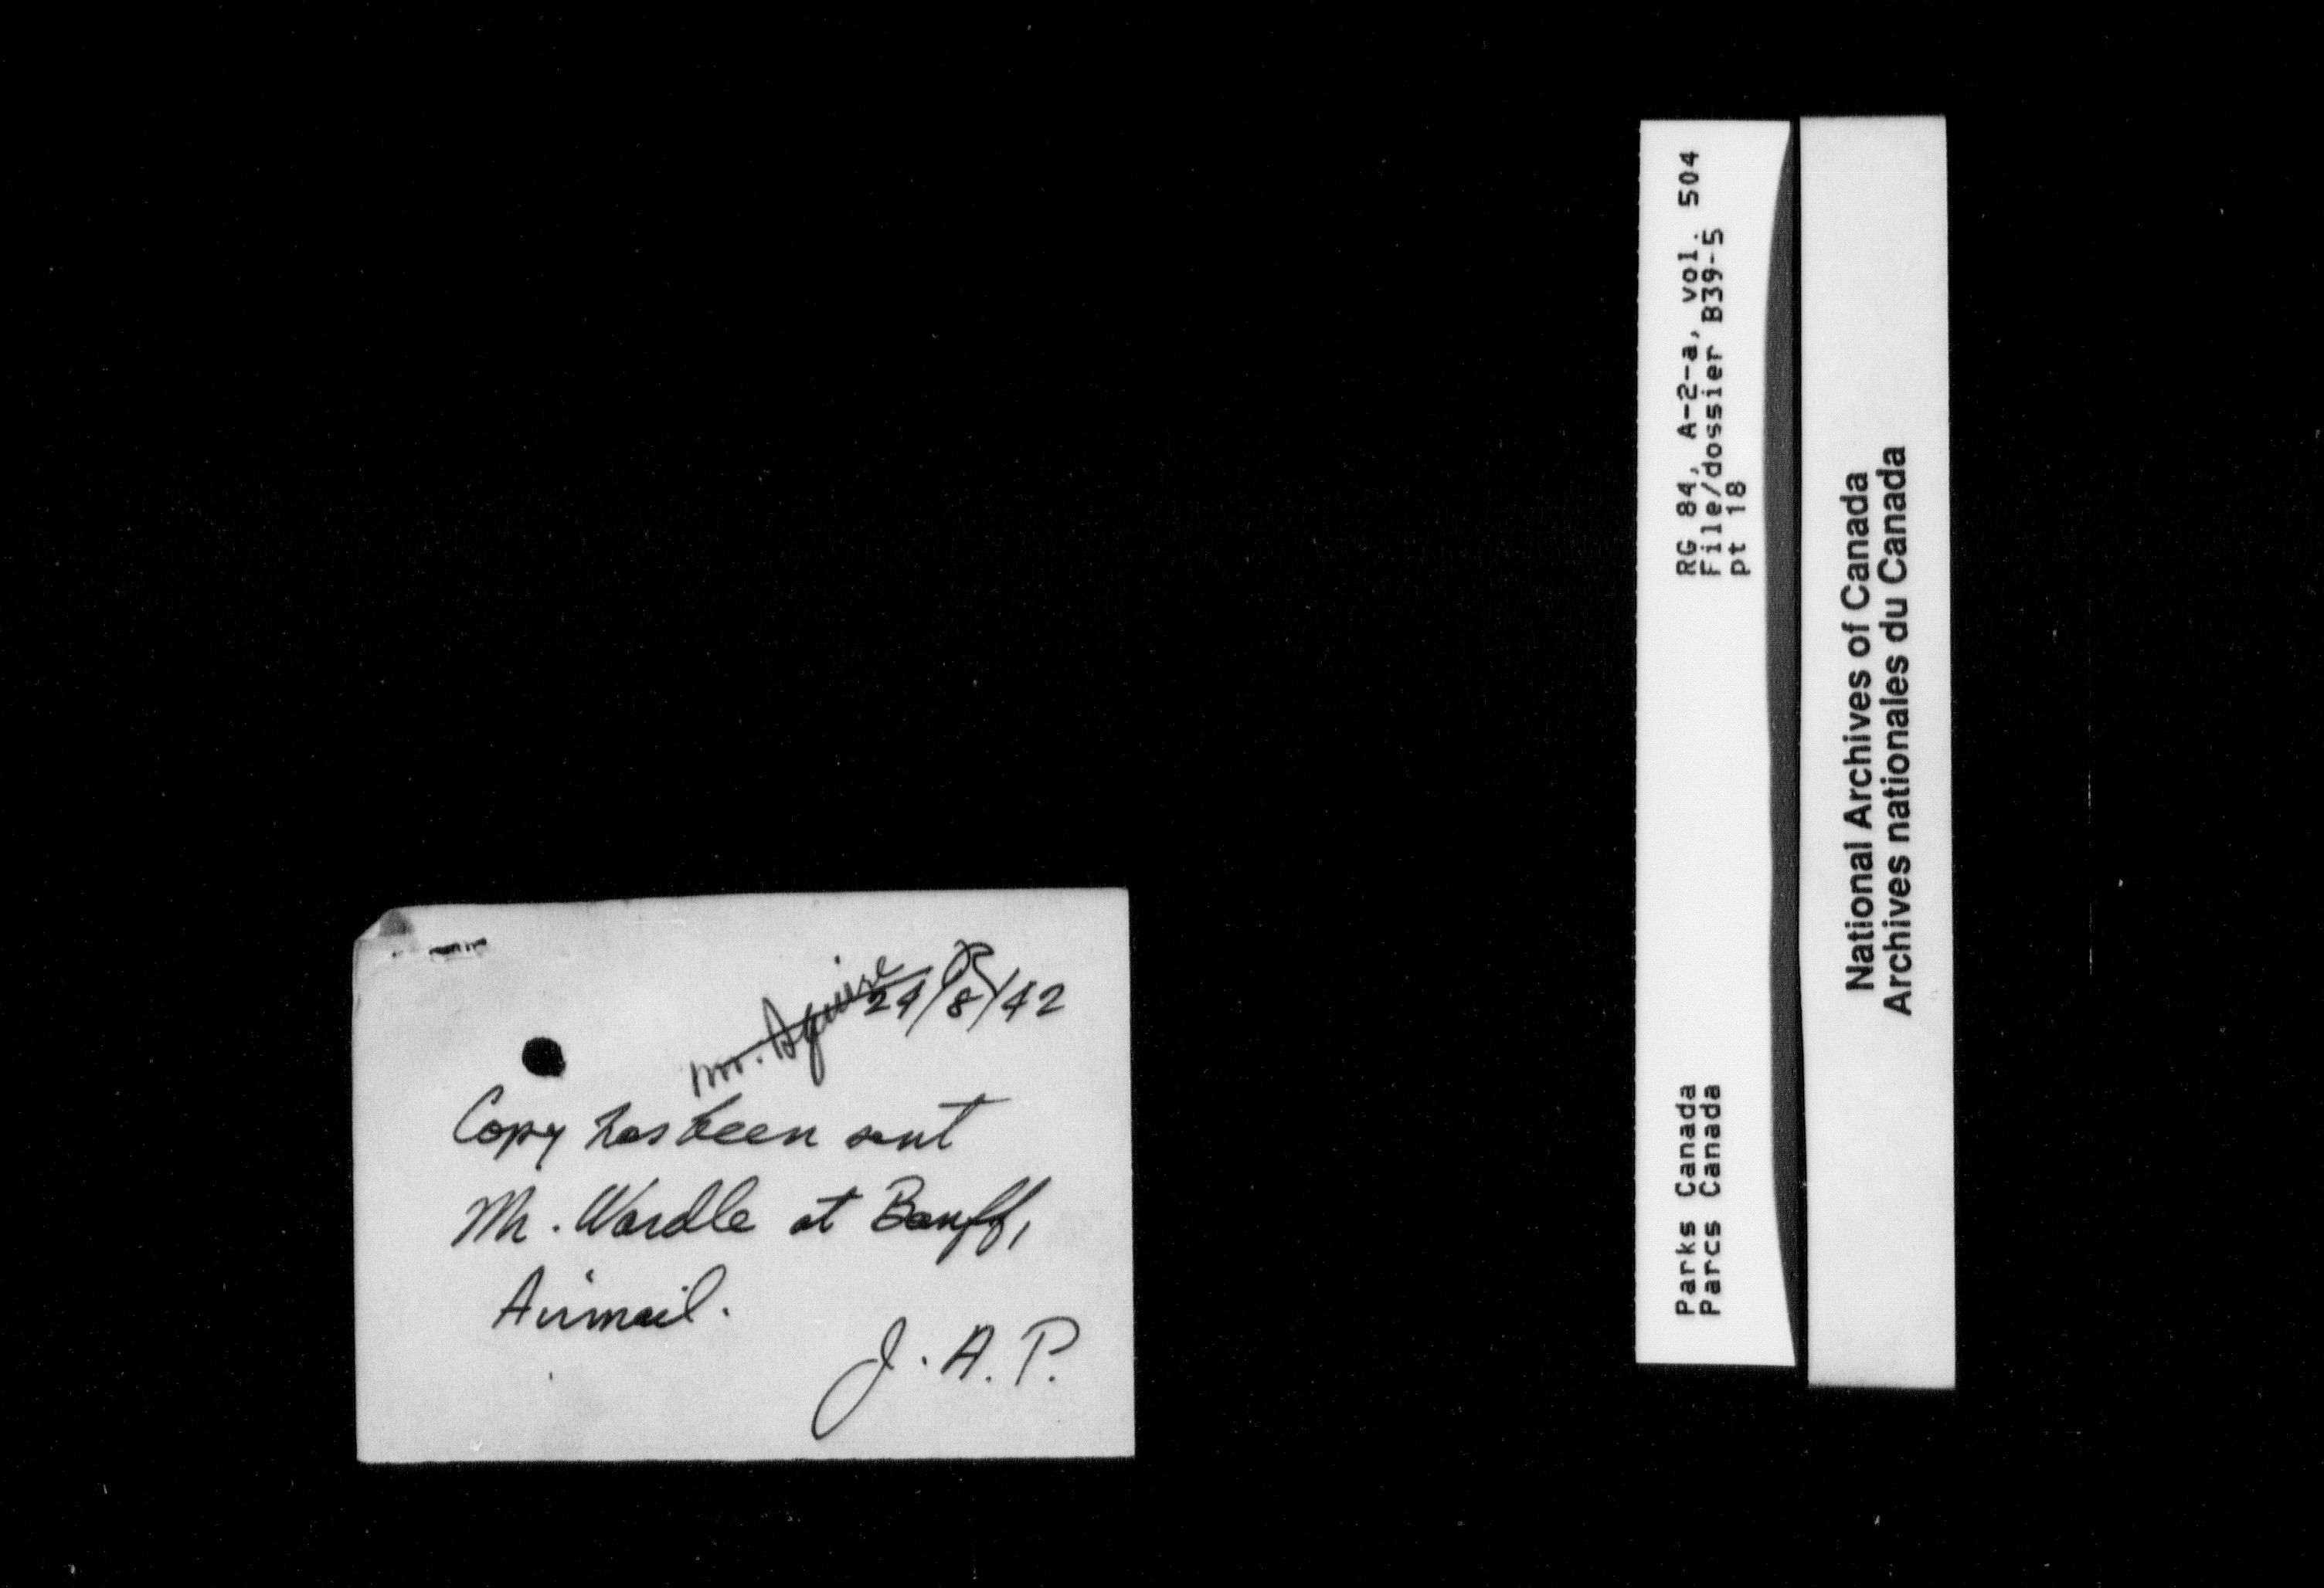 24/8/42
Mr.
Copy has been sent
Mr. Wardle at Banff,
Airmail.
J. A. P.
RG 84, A-2-a, vol. 504
File/dossier B39-5
pt 18
Parks Canada
Parcs Canada
National Archives of Canada
Archives nationales du Canada